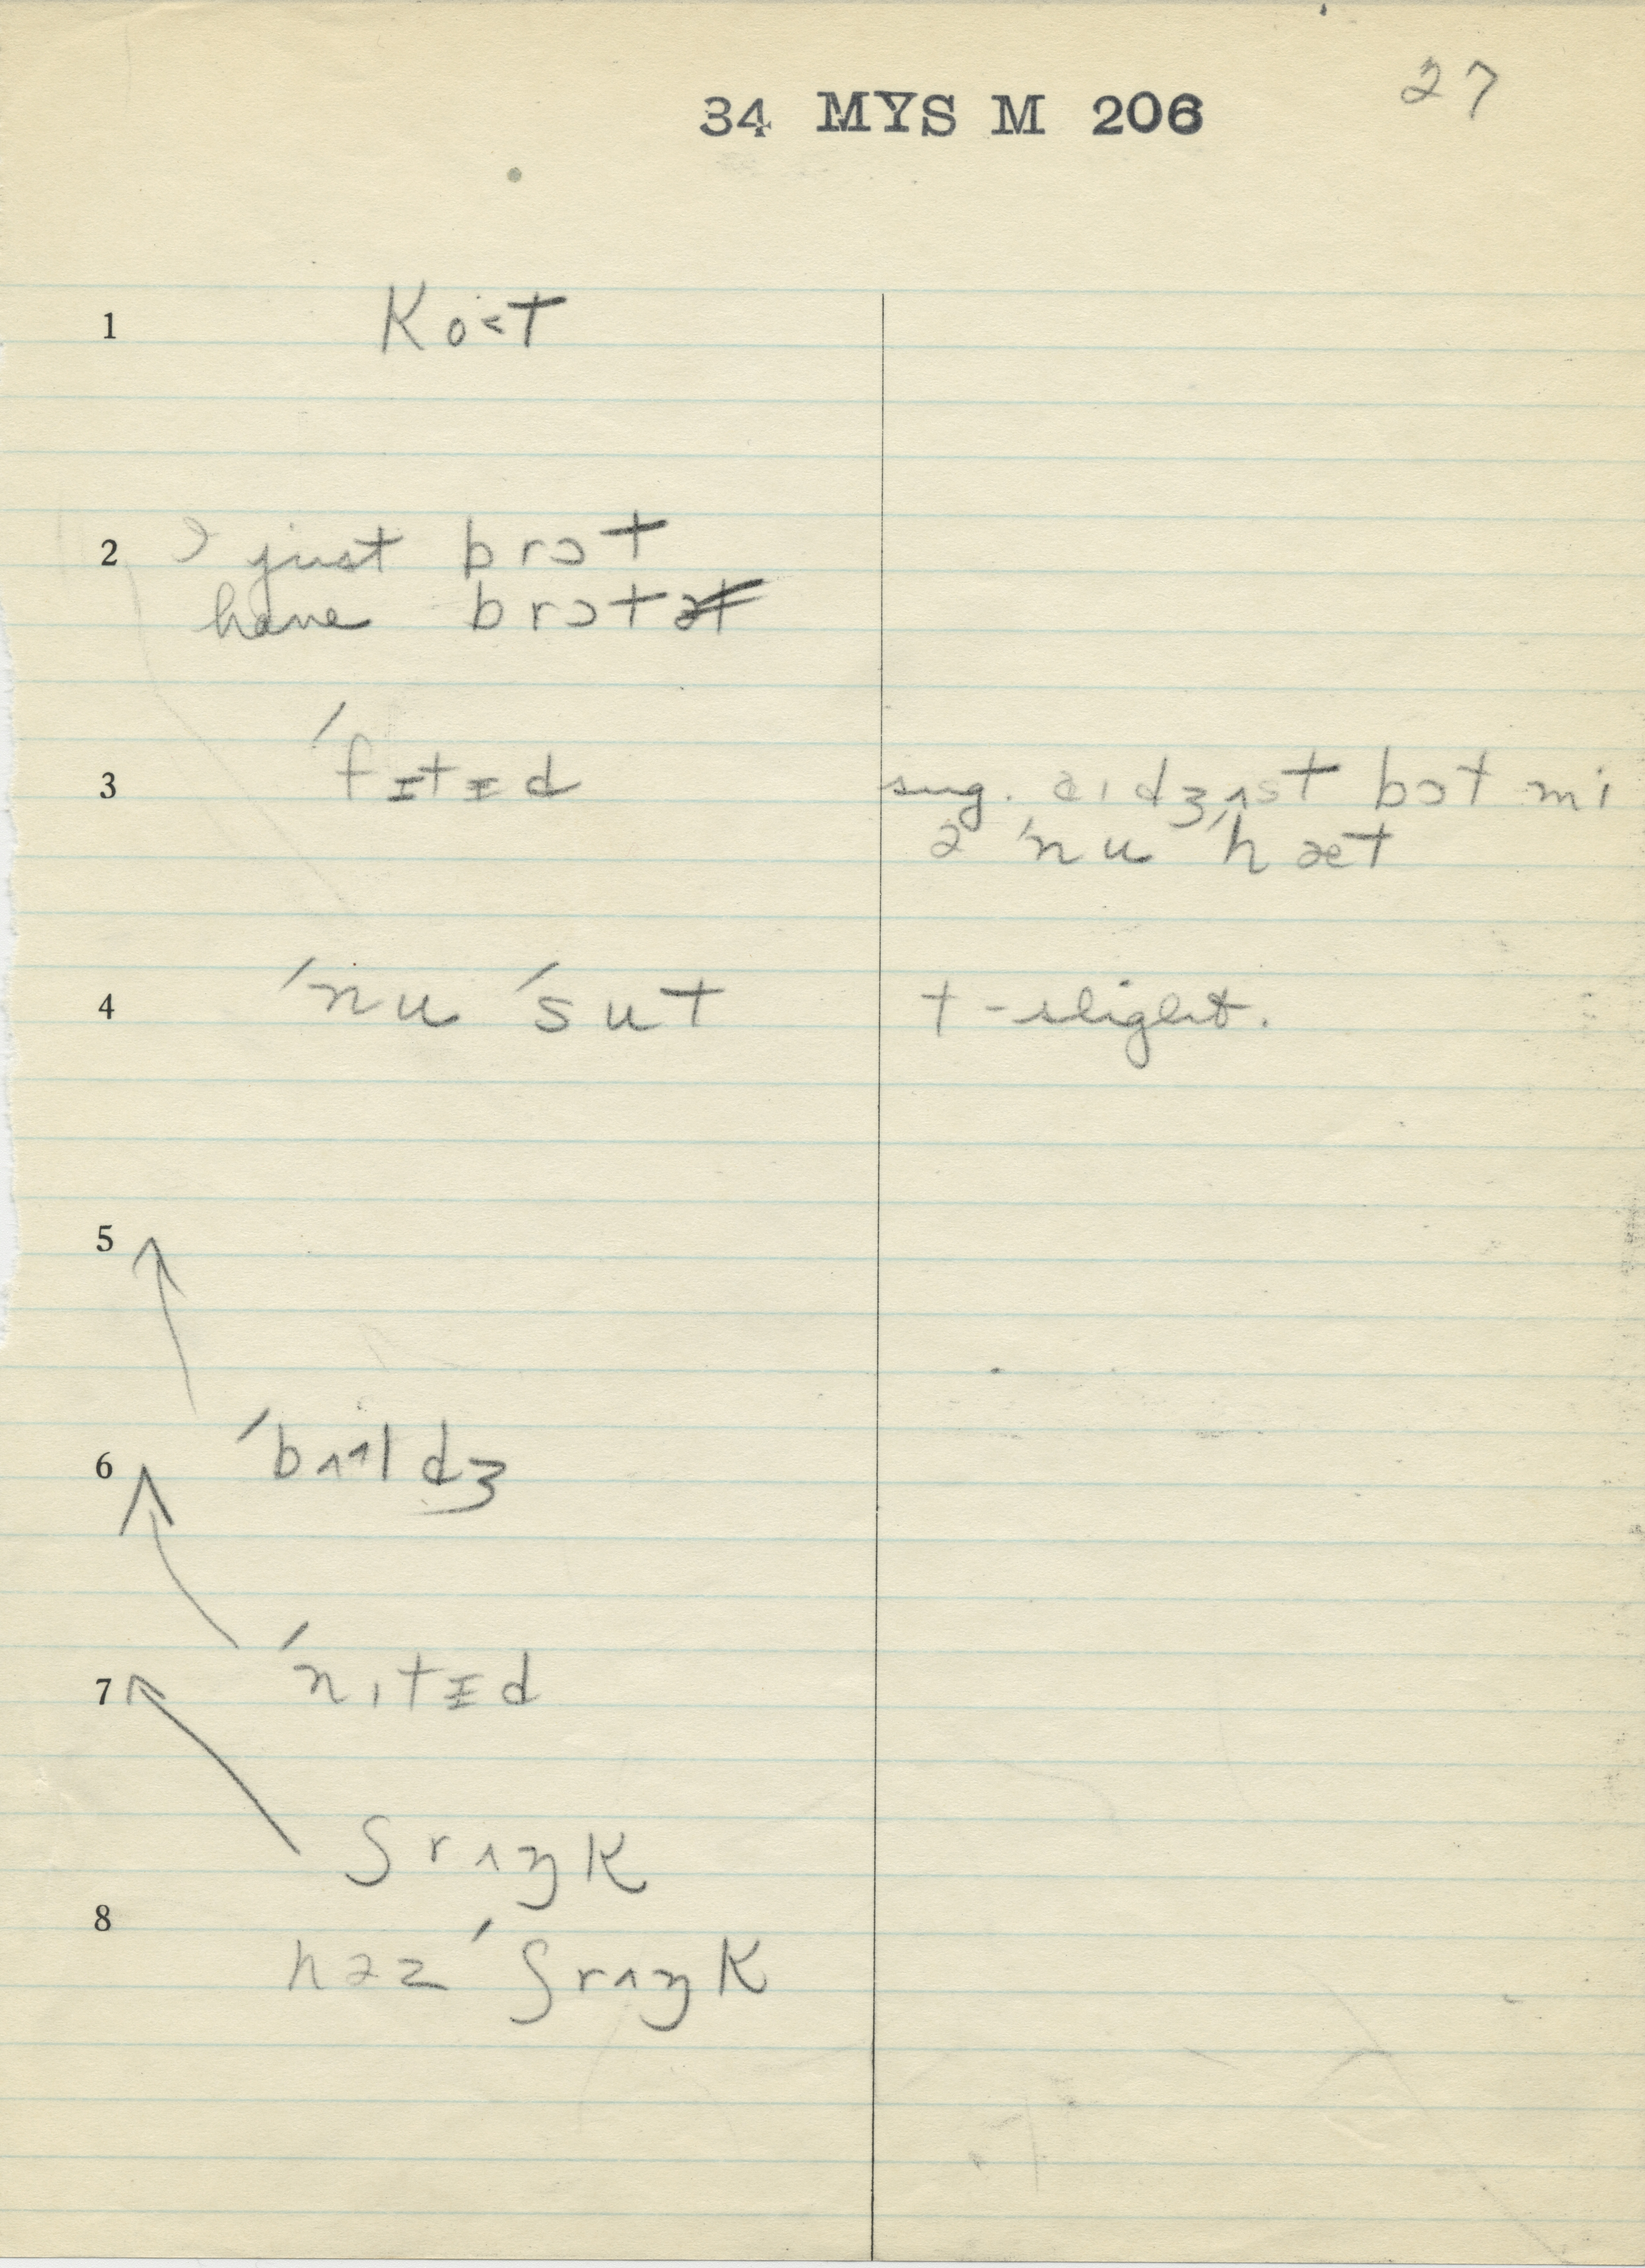 27
34 MYS M 206
1 Ko˂t
2 I just brɔt
have brɔt
3 ˈfɪtɪd sug. aɪ dʒʌst bɔt mi
ə ˈnu ˈhæt
4 ˈnu ˈsut t - slight.
5 ↑
6 ↑ ˈbʌ˧l dʒ
7 ↑ ˈnɪtɪd
ʃrʌŋk
8
həz ˈʃrʌŋk